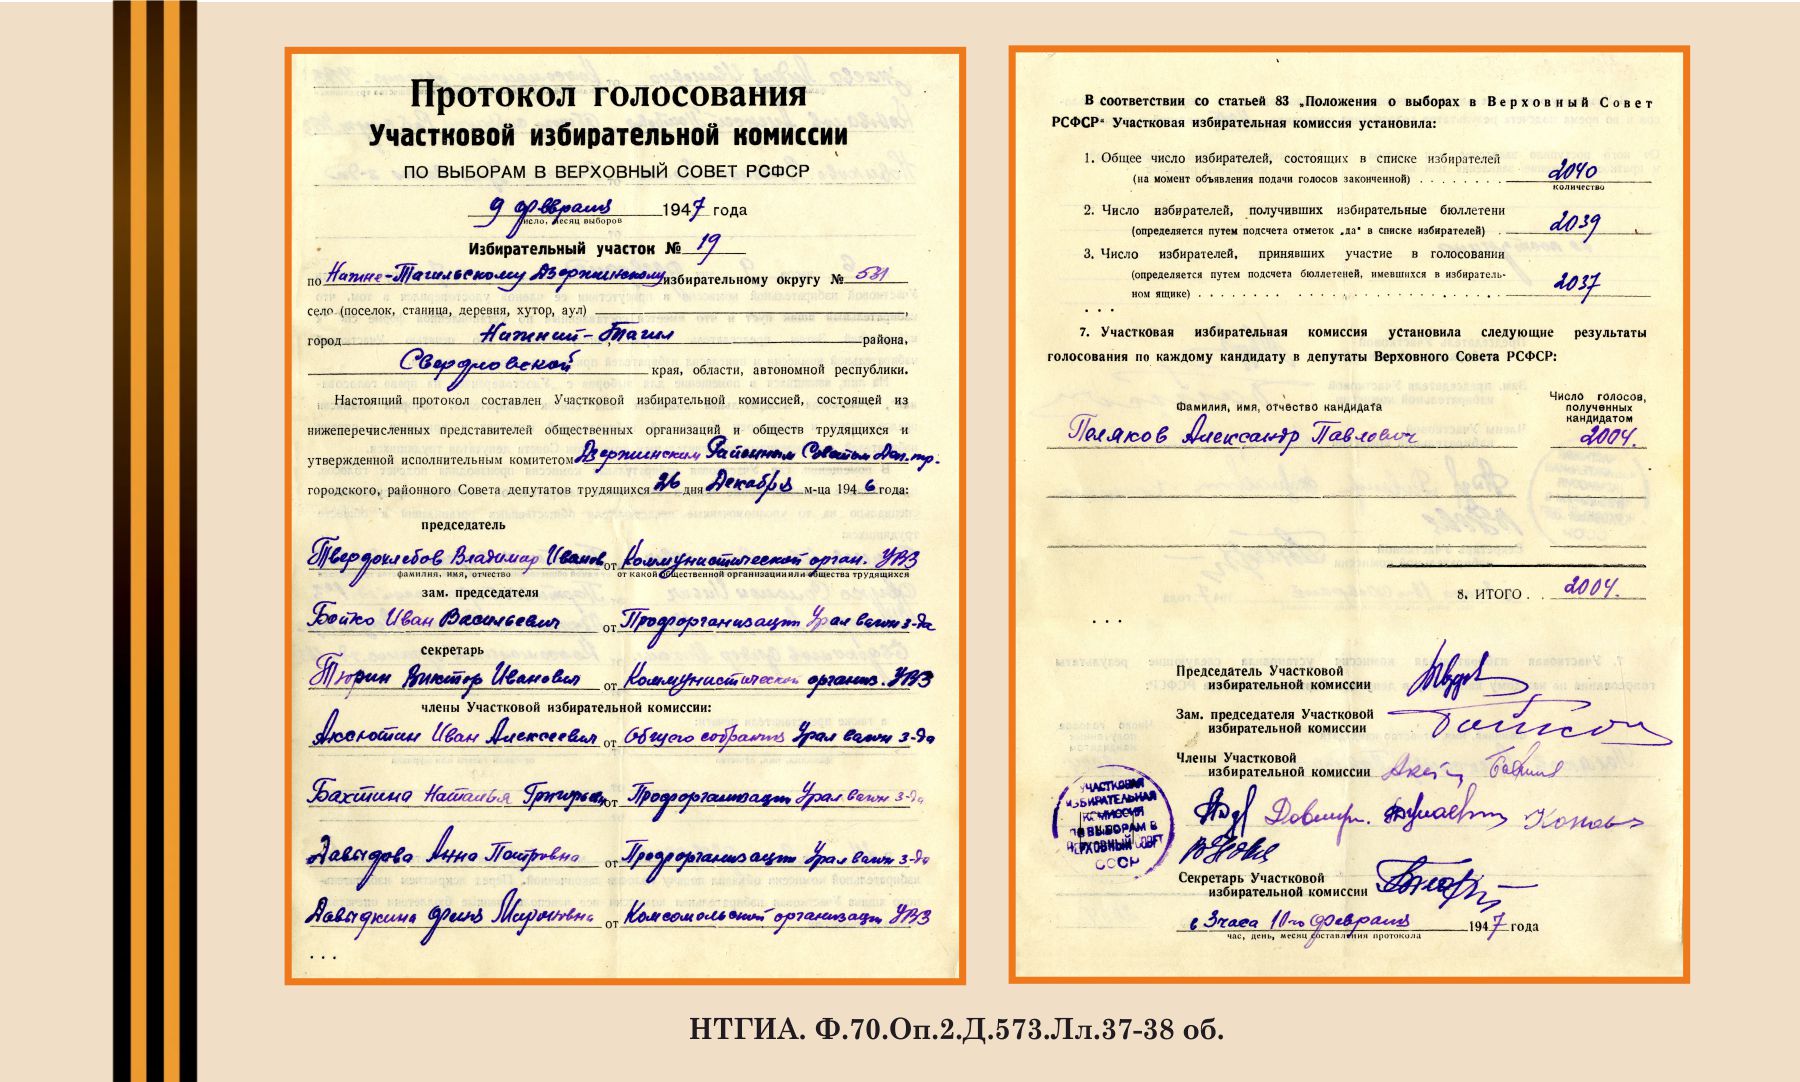 Протокол голосования
Участковой избирательной комиссии
ПО ВЫБОРАМ В ВЕРХОВНЫЙ СОВЕТ РСФСР
9 февраля 1947 года
число, месяц выборов
Избирательный участок № 19
по Нижне-Тагильскому Дзержинскому избирательному округу № 531
село (поселок, станица, деревня, хутор, аул)
город Нижний-Тагил района,
Свердловской края, области, автономной республики.
Настоящий протокол составлен Участковой избирательной комиссией, состоящей из
нижеперечисленных представителей общественных организаций и обществ трудящихся и
утвержденной исполнительным комитетом Дзержинским Районным Советом Деп. тр.
городского, районного Совета депутатов трудящихся 26 дня Декабря м-ца 1946 года:
председатель
Твердохлебов Владимир Иванов от Коммунистической орган. УВЗ
фамилия, имя, отчество от какой общественной организации или общества трудящихся
зам. председателя
Бойко Иван Васильевич от Профорганизации Урал вагон з-да
секретарь
Тюрин Виктор Иванович от Коммунистической организ. УВЗ
члены Участковой избирательной комиссии:
Аксютин Иван Алексеевич от Общего собрания Урал вагон з-да
Бахтина Наталья Григорьев от Профорганизации Урал вагон з-да
Давыдова Анна Петровна от Профорганизации Урал вагон з-да
Давыдкина Фаина Мироновна от Комсомольской организации УВЗ
...
В соответствии со статьей 83 „Положения о выборах в Верховный Совет
РСФСР“ Участковая избирательная комиссия установила:
1. Общее число избирателей, состоящих в списке избирателей
(на момент объявления подачи голосов законченной) . . . . . . . . 2040
количество
2. Число избирателей, получивших избирательные бюллетени
(определяется путем подсчета отметок „да“ в списке избирателей) . 2039
3. Число избирателей, принявших участие в голосовании
(определяется путем подсчета бюллетеней, имевшихся в избиратель-
ном ящике) . . . . . . . . . . . . . . . . . . . . 2037
...
7. Участковая избирательная комиссия установила следующие результаты
голосования по каждому кандидату в депутаты Верховного Совета РСФСР:
Фамилия, имя, отчество кандидата
Число голосов,
полученных
кандидатом
Поляков Александр Павлович 2004.
8. ИТОГО . . 2004.
...
Председатель Участковой
избирательной комиссии
Зам. председателя Участковой
избирательной комиссии Бойко
Члены Участковой
избирательной комиссии
УЧАСТКОВАЯ
ИЗБИРАТЕЛЬНАЯ
КОМИССИЯ
ПО ВЫБОРАМ В
ВЕРХОВНЫЙ СОВЕТ
СССР
Секретарь Участковой
избирательной комиссии
в 3 часа 10-го февраля 1947 года
час, день, месяц составления протокола
НТГИА. Ф.70.Оп.2.Д.573.Лл.37-38 об.